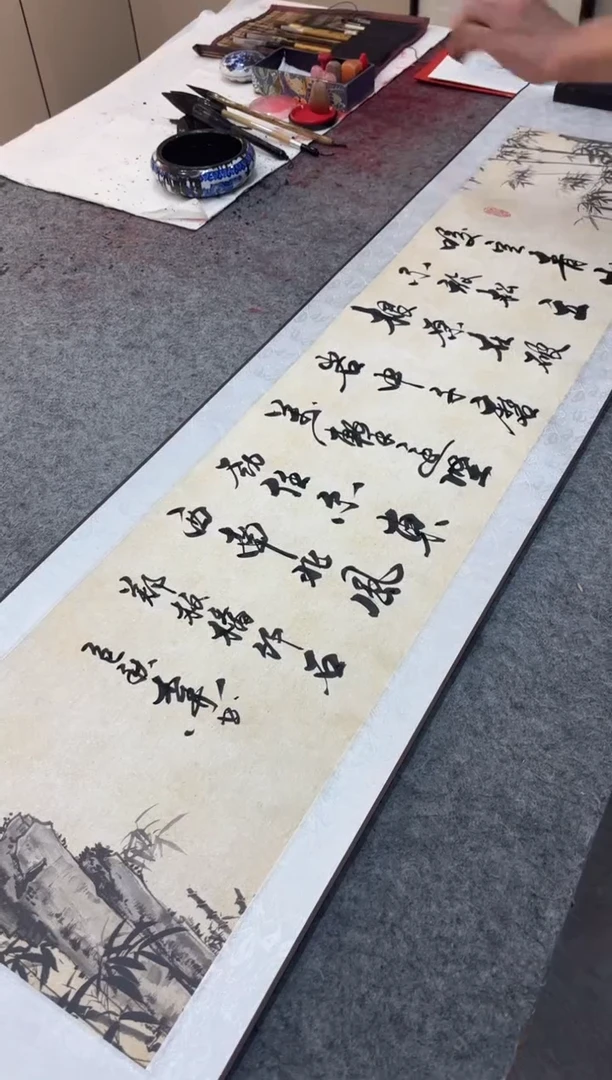 咬定青山
不放松立
根原在破
岩中千磨
万击还坚
劲任尔東
西南北风
郑板橋竹石
书